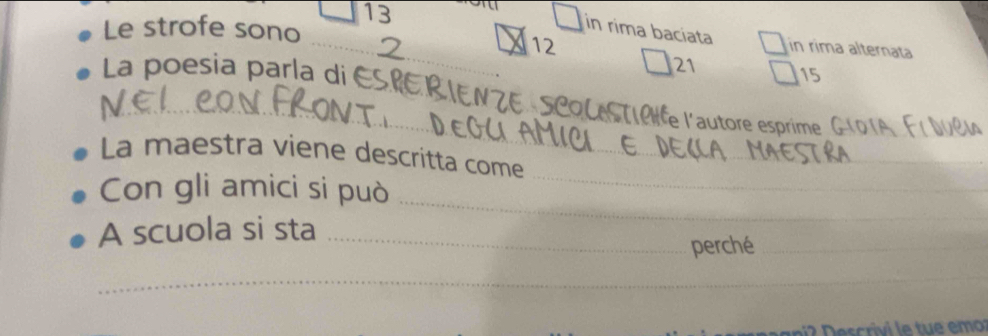 13
in rima baciata
in rima alternata
Le strofe sono 2
12
21
15
La poesia parla di ESPERIENZE SCOLASTICHE e l'autore esprime GIOIA FIDUCIA
NEI CONFRONTI DEGLI AMICI E DELLA MAESTRA
La maestra viene descritta come
Con gli amici si può
A scuola si sta perché
Descrivi le tue